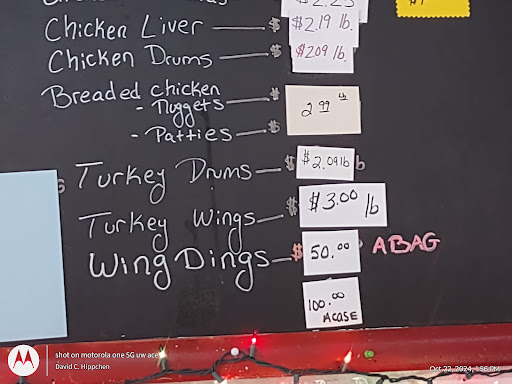 Chicken Liver $ $2.19 lb.
Chicken Drums $ $2.09 lb
Breaded chicken $
- Nuggets 2.99 lb
- Patties $
Turkey Drums $ $2.09 lb
Turkey Wings $ $3.00 lb
Wing Dings $ 50.00 A BAG
100.00
A CASE
shot on motorola one 5G uw ace
David C. Hippchen
Oct 22, 2024, 1:56 PM